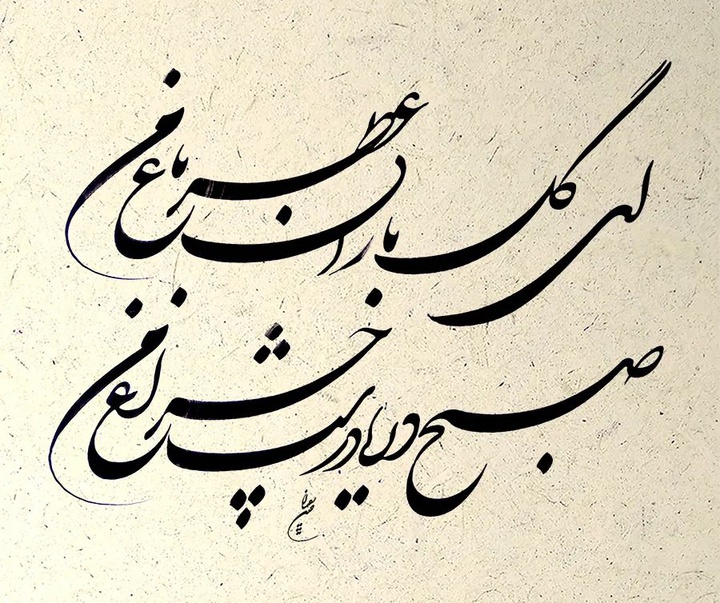 ای گل باران عطر باغ من
صبح دریا در شب چراغ من